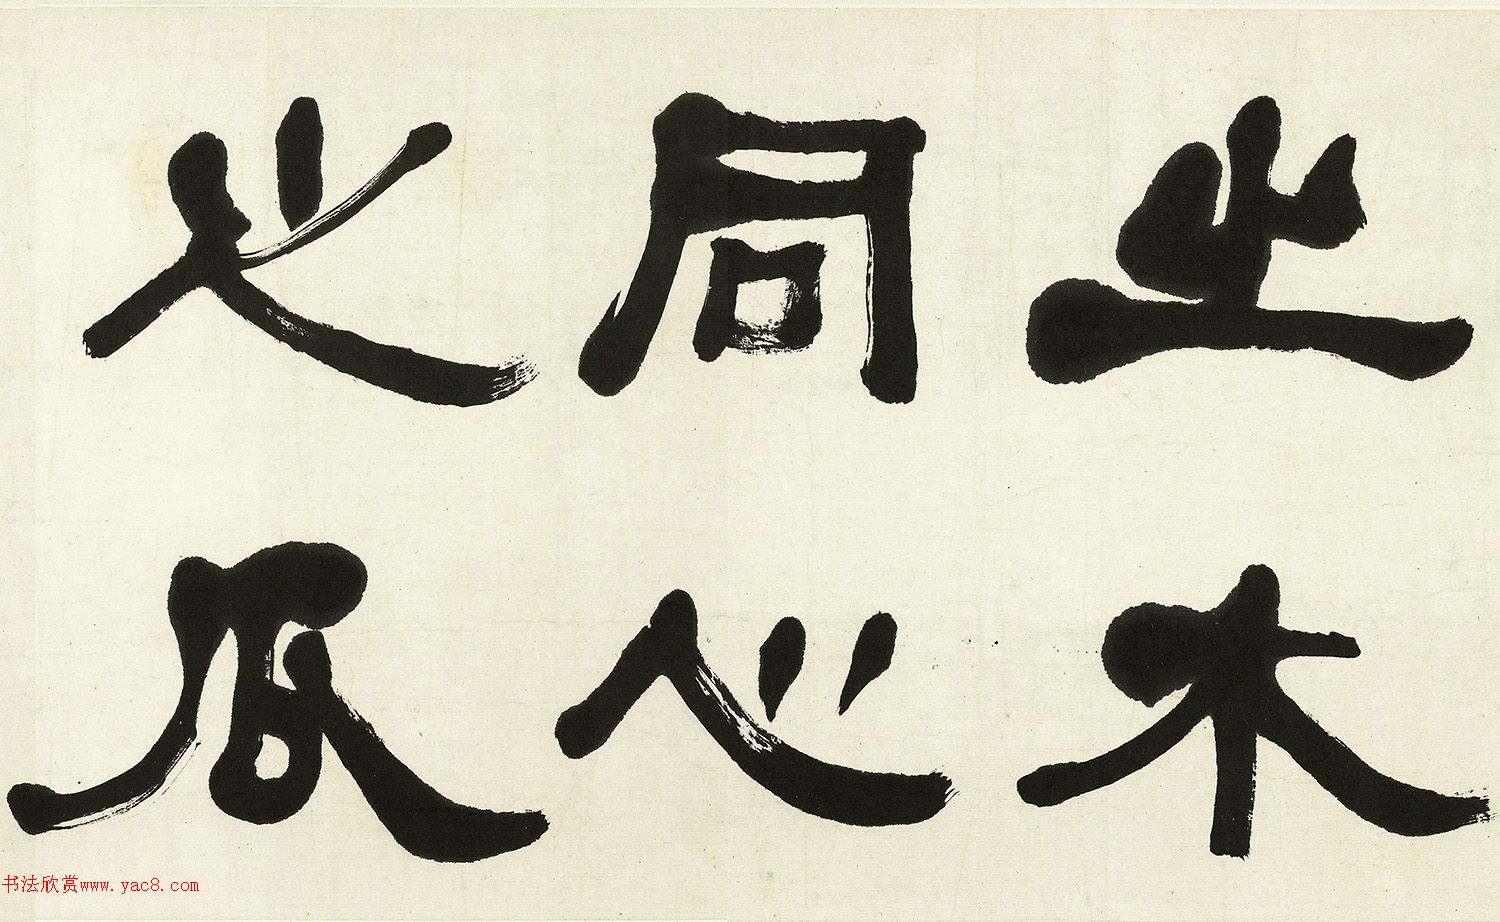 之木
同心
之瓜
书法欣赏www.yac8.com